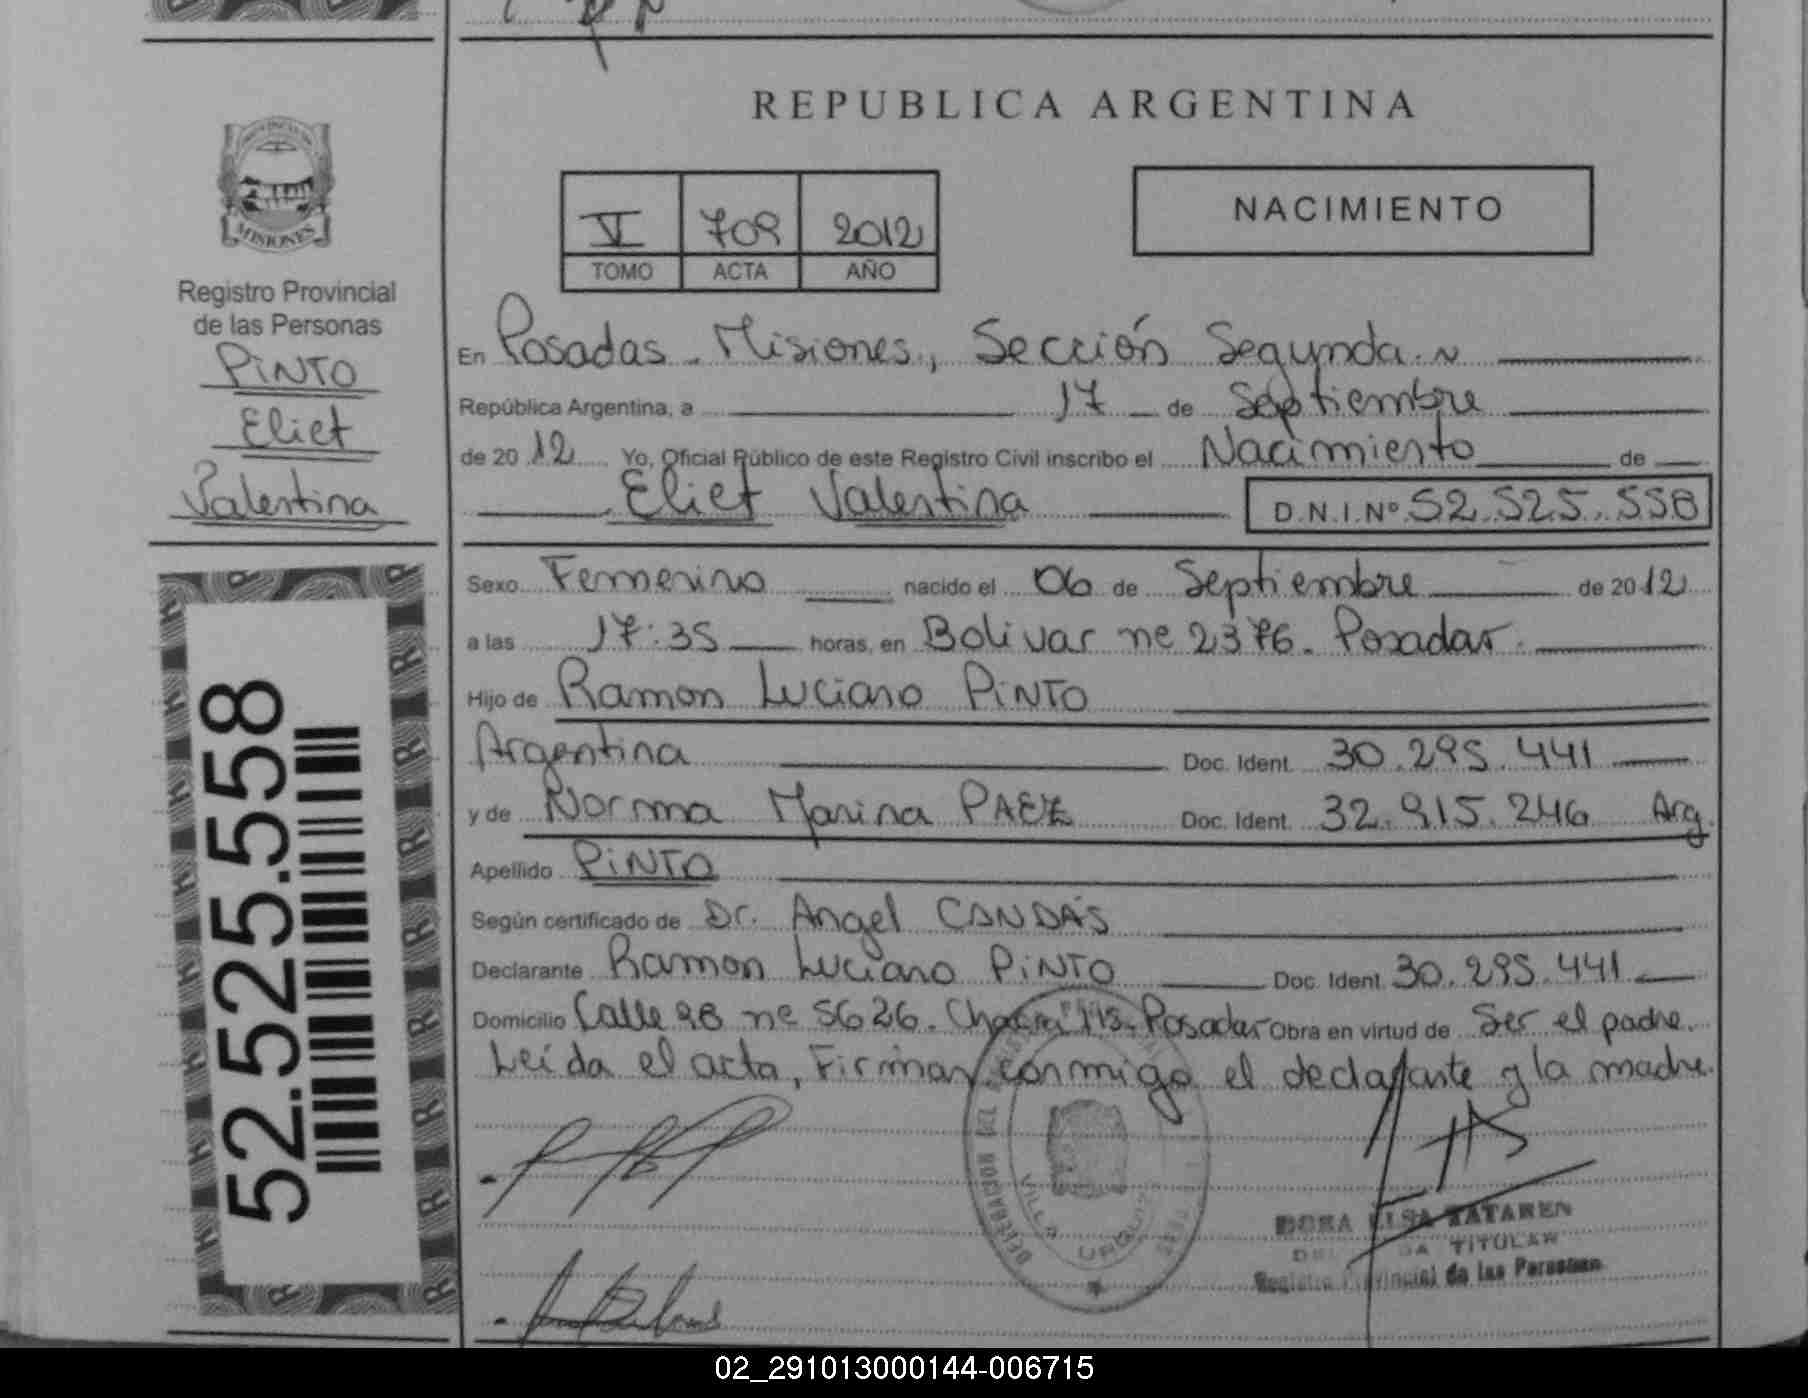 REPUBLICA ARGENTINA
MISIONES
Registro Provincial
de las Personas
PINTO
Eliet
Valentina
52.525.558
V 709 2012
TOMO ACTA AÑO
NACIMIENTO
En Posadas. Misiones, Sección Segunda.
República Argentina, a 17 de Septiembre
de 2012 Yo, Oficial Público de este Registro Civil inscribo el Nacimiento de
Eliet Valentina D.N.I.Nº 52.525.558
Sexo Femenino nacido el 06 de Septiembre de 2012
a las 17:35 horas, en Bolivar nº 2376. Posadas.
Hijo de Ramon Luciano PINTO
Argentina Doc. Ident. 30.295.441
y de Norma Marina PAEZ Doc. Ident. 32.915.246 Arg.
Apellido PINTO
Según certificado de Dr. Angel
Declarante Ramon Luciano PINTO Doc. Ident. 30.295.441
Domicilio Calle nº 5626. Chacra Posadas Obra en virtud de Ser el padre.
Leída el acta, Firman conmigo el declarante y la madre.
DELEGACION
VILLA URQUIZA
TITULAR
Registro Provincial de las Personas
02_291013000144-006715